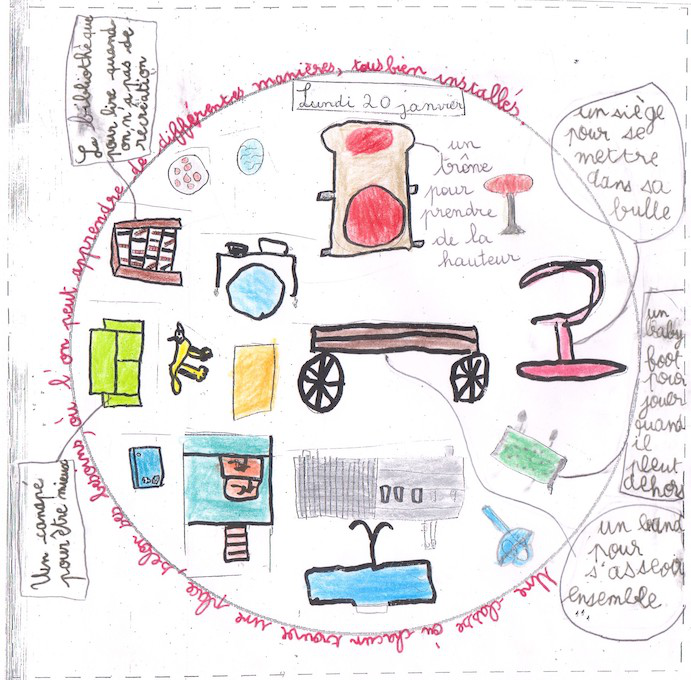 Lundi 20 janvier
Une classe où chacun trouve une place, selon ses besoins, où l'on peut apprendre de différentes manières, tous bien installés.
La bibliothèque
pour lire quand
on n'a pas de
recréation
un
trône
pour
prendre
de la
hauteur
un siège
pour se
mettre
dans sa
bulle
un
baby
foot
pour
jouer
quand
il
pleut
dehors
un band
pour
s'asseoir
ensemble
Un canapé
pour être mieux